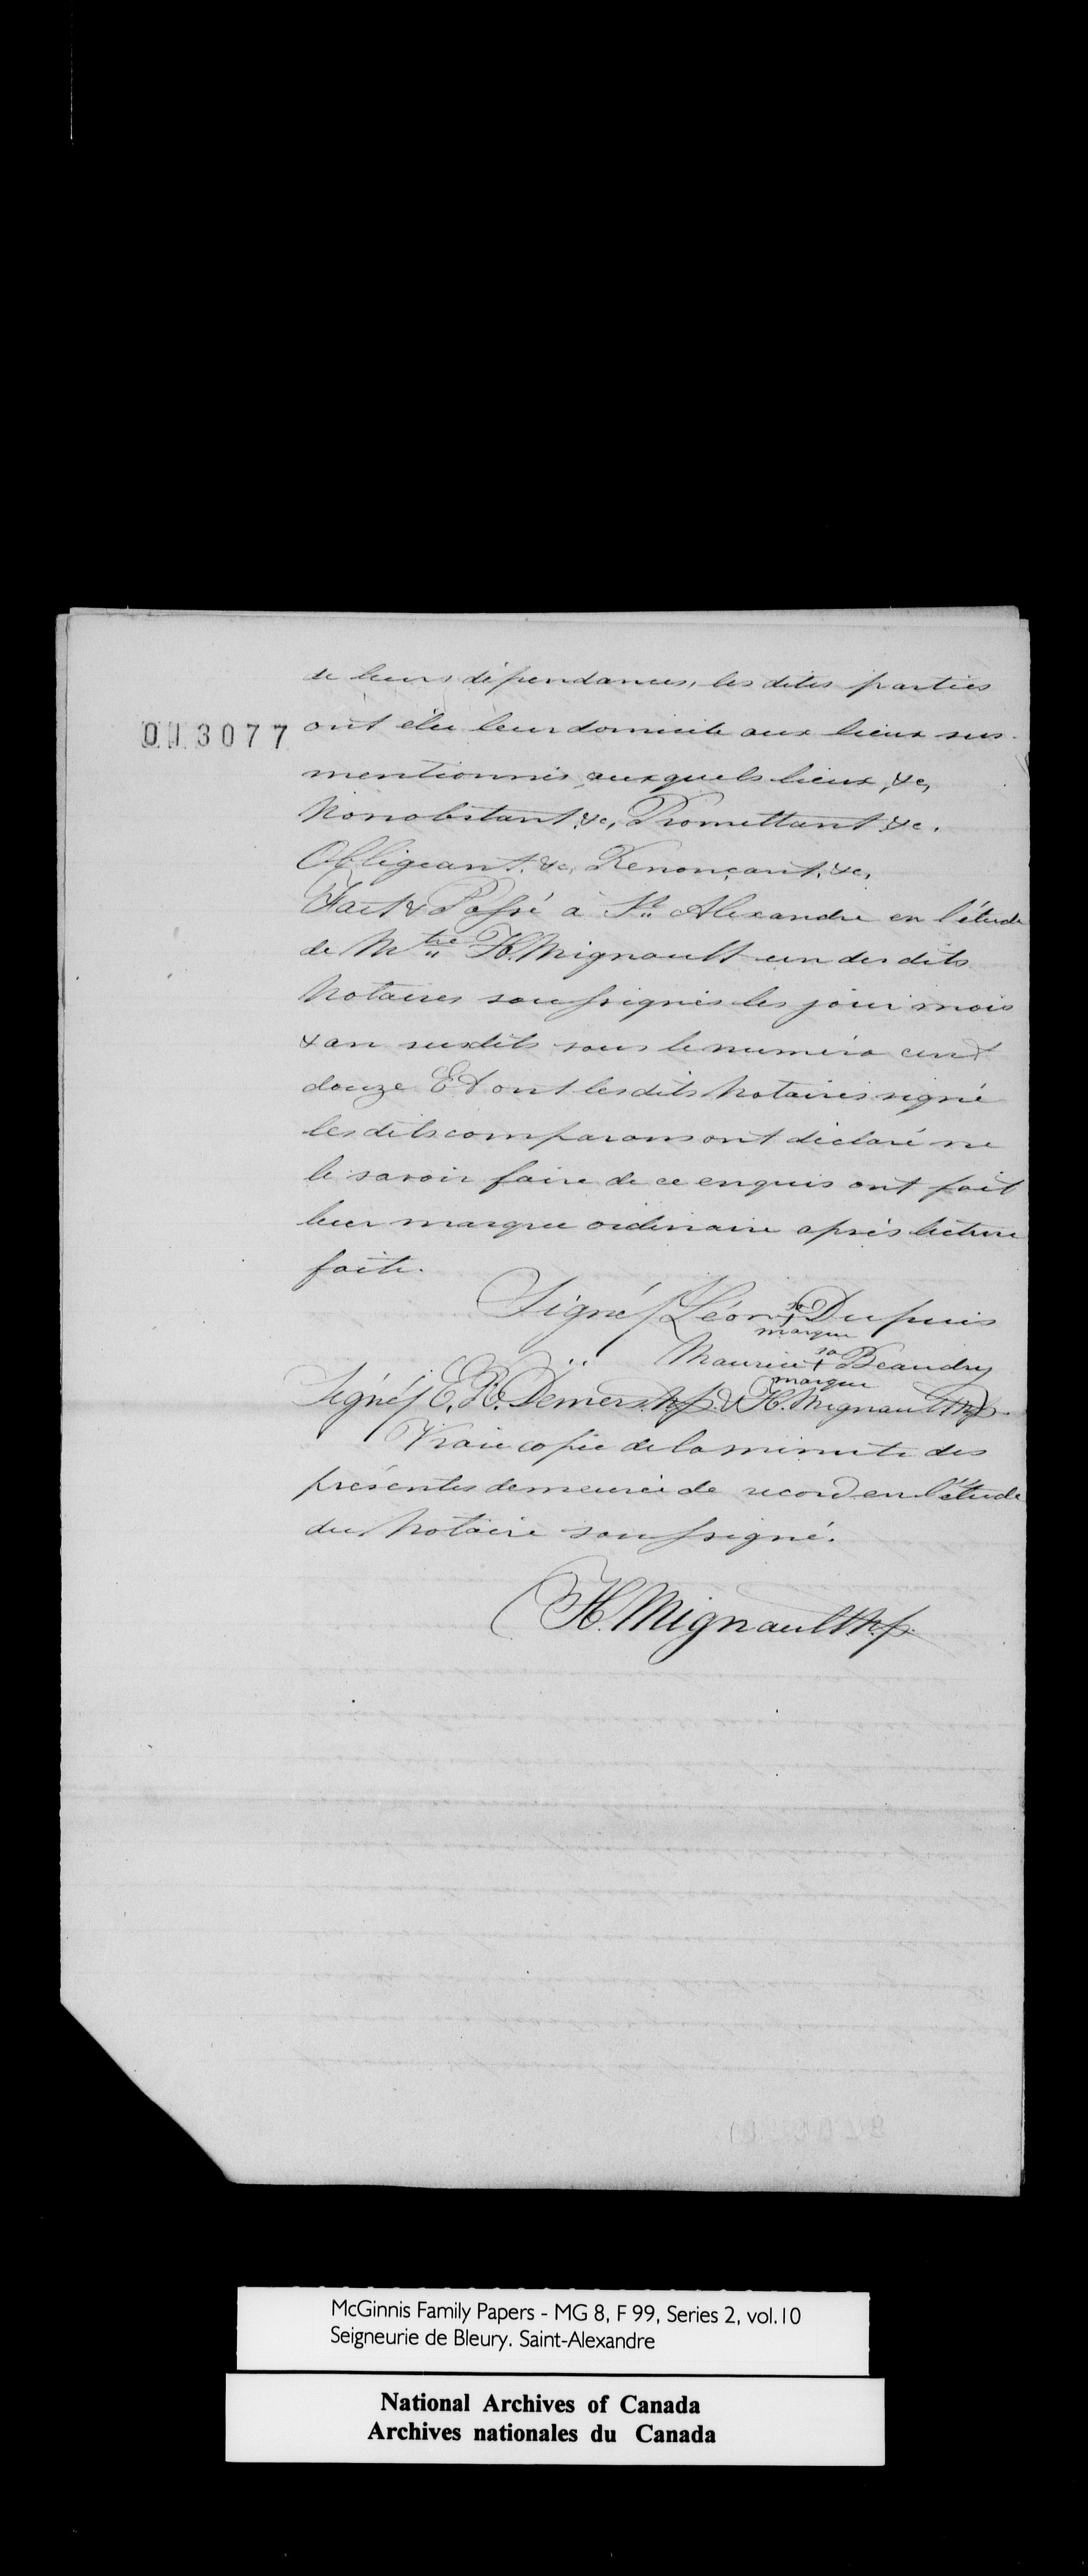 de leurs dépendances, les dites parties
013077
ont élu leur domicile aux lieux sus-
mentionnés auxquels lieux, &c,
Nonobstant &c, Promettant &c.
Obligeant, &c, Renonçant, &c,
Fait & Passé à St. Alexandre en l'étude
de Mtre H. Mignault un des dits
Notaires soussignés les jour mois
& an susdits sous le numéro cent
douze Et ont les dits Notaires signé
les dits comparans ont déclaré ne
le savoir faire de ce enquis ont fait
leur marque ordinaire après lecture
faite.
Signé/ Léon sa + marque Dupuis
" Maurice sa + marque Beaudry
Signés/ E. R. Demers. N.P. & H. Mignault N.P.
Vraie copie de la minute des
présentes demeurée de record en l'étude
du Notaire soussigné.
H. Mignault N.p.
McGinnis Family Papers - MG 8, F 99, Series 2, vol.10
Seigneurie de Bleury. Saint-Alexandre
National Archives of Canada
Archives nationales du Canada